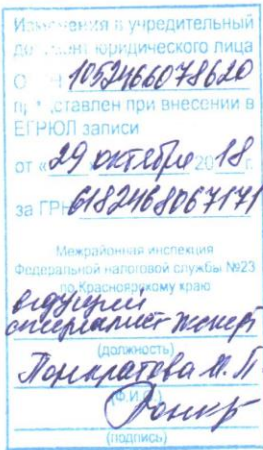 Изменения в учредительный
документ юридического лица
ОГРН 1052466078620
представлен при внесении в
ЕГРЮЛ записи
от «29 октября 2018 г.
за ГРН 6182468067171
Межрайонная инспекция
Федеральной налоговой службы №23
по Красноярскому краю
ведущий
специалист эксперт
(должность)
Понкратова М. П.
(Ф.И.О.)
(подпись)